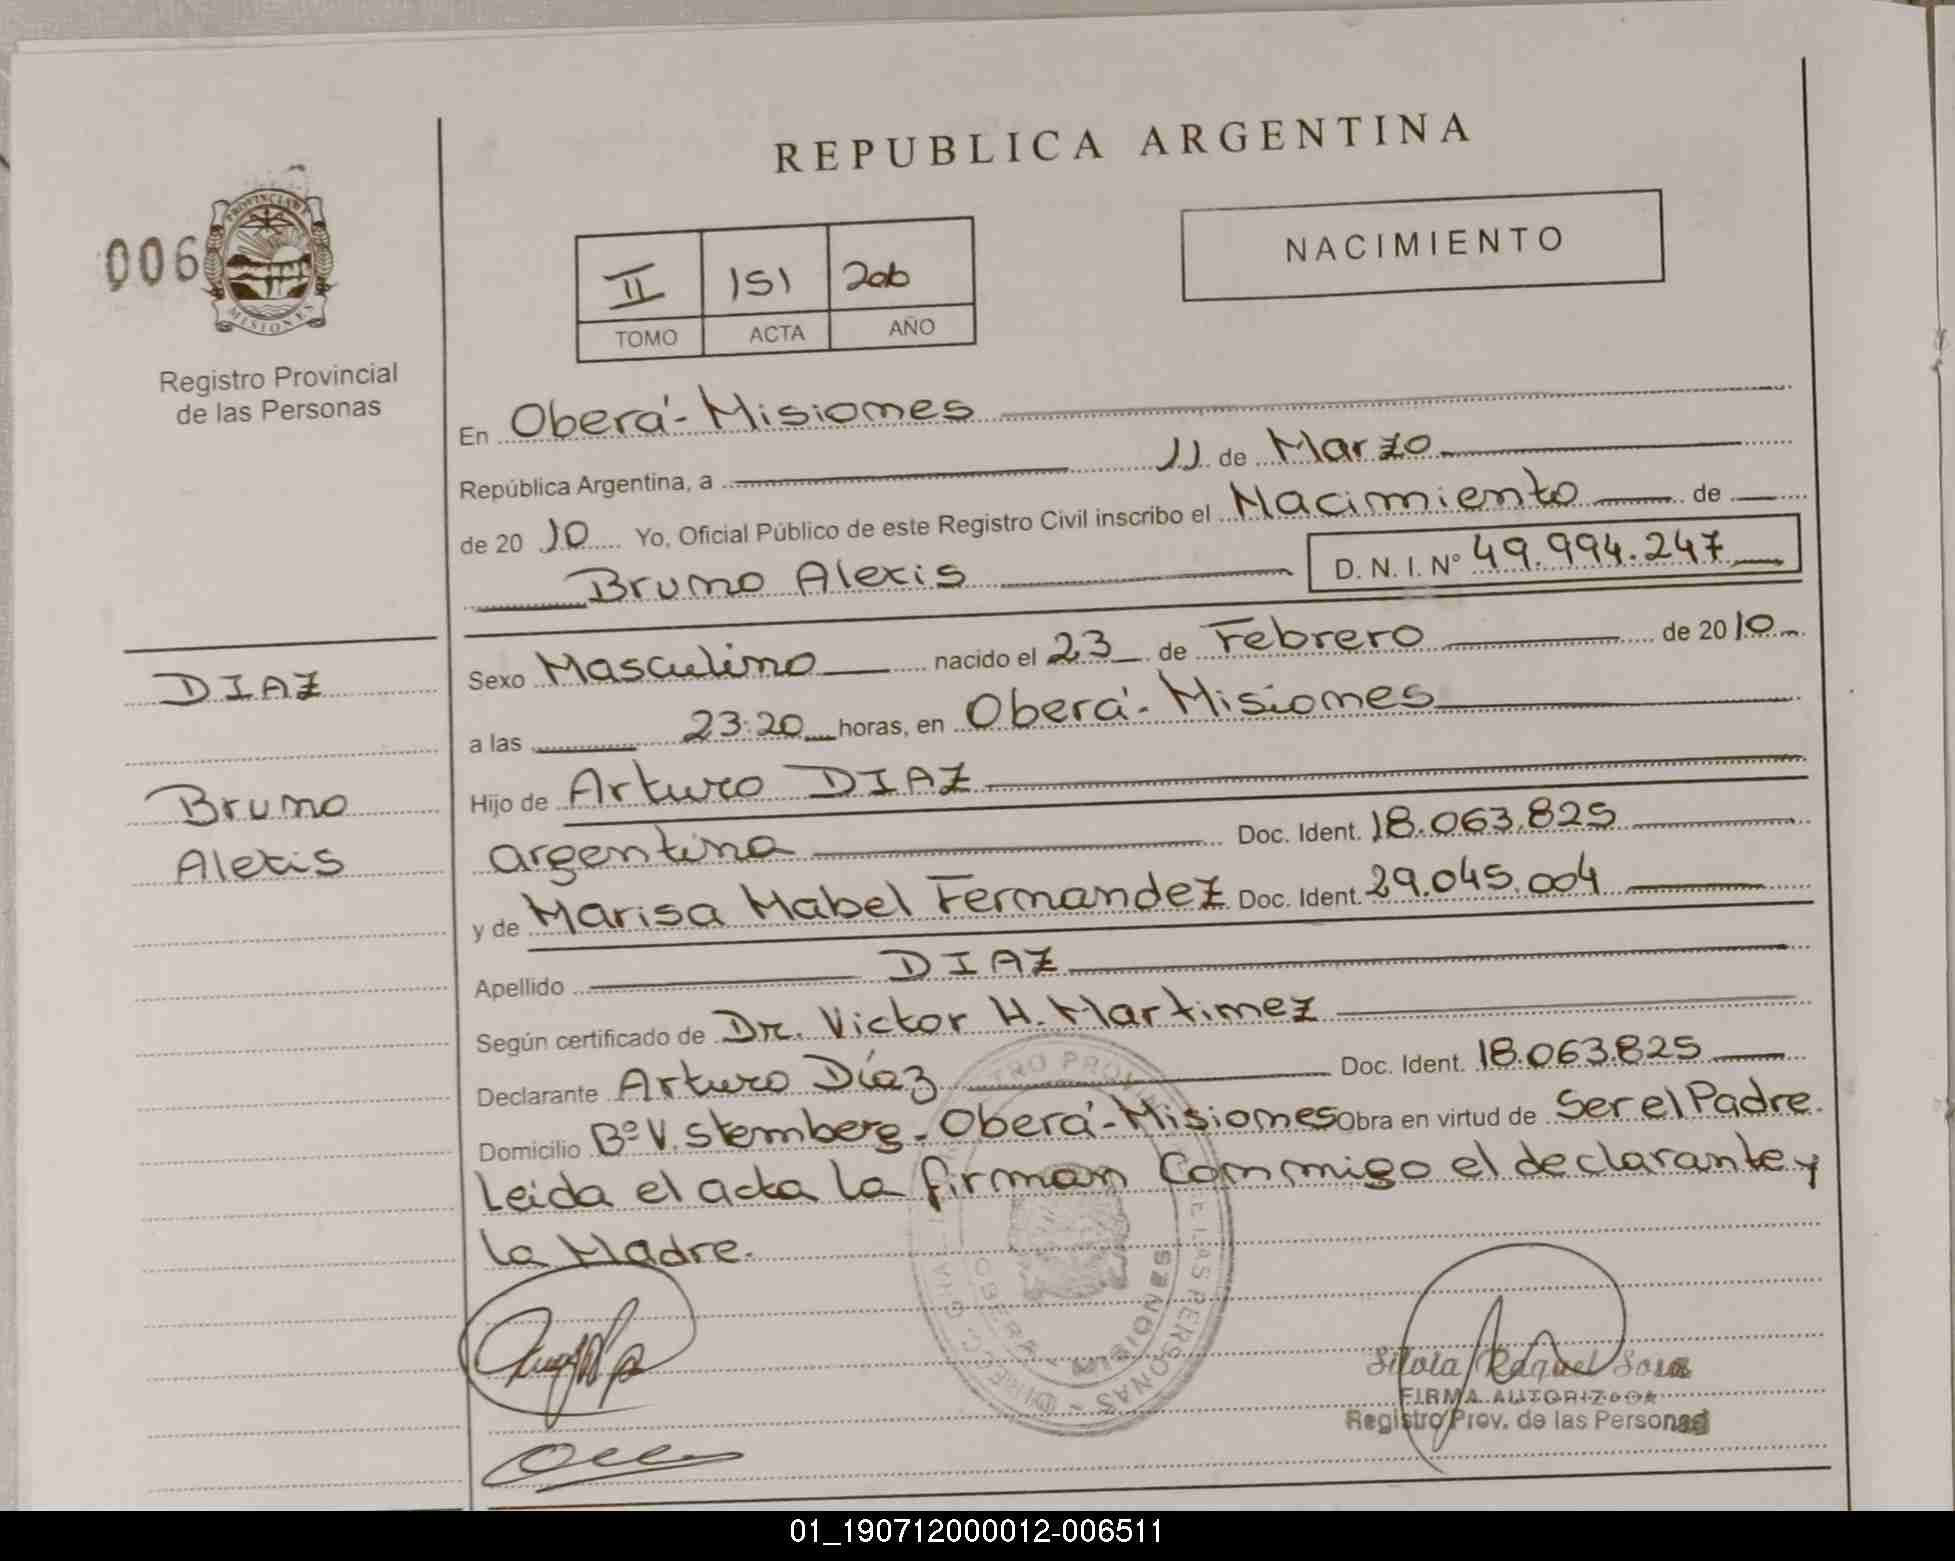 REPUBLICA ARGENTINA
006
PROVINCIA DE
MISIONES
Registro Provincial
de las Personas
II 151 2010
TOMO ACTA AÑO
NACIMIENTO
En Oberá - Misiones
República Argentina, a 11 de Marzo
de 20 10 Yo, Oficial Público de este Registro Civil inscribo el Nacimiento de
Bruno Alexis D. N. I. Nº 49.994.247
DIAZ
Bruno
Alexis
Sexo Masculino nacido el 23 de Febrero de 20 10
a las 23:20 horas, en Oberá - Misiones
Hijo de Arturo DIAZ
argentina Doc. Ident. 18.063.825
y de Marisa Mabel Fernandez Doc. Ident. 29.045.004
Apellido DIAZ
Según certificado de Dr. Victor H. Martinez
Declarante Arturo Díaz Doc. Ident. 18.063.825
Domicilio Bº V. Stemberg - Oberá - Misiones Obra en virtud de Ser el Padre.
Leida el acta la firman Conmigo el declarante y
la Madre.
OBERA - MISIONES
Silvia Raquel Sosa
FIRMA AUTORIZADA
Registro Prov. de las Personas
01_190712000012-006511